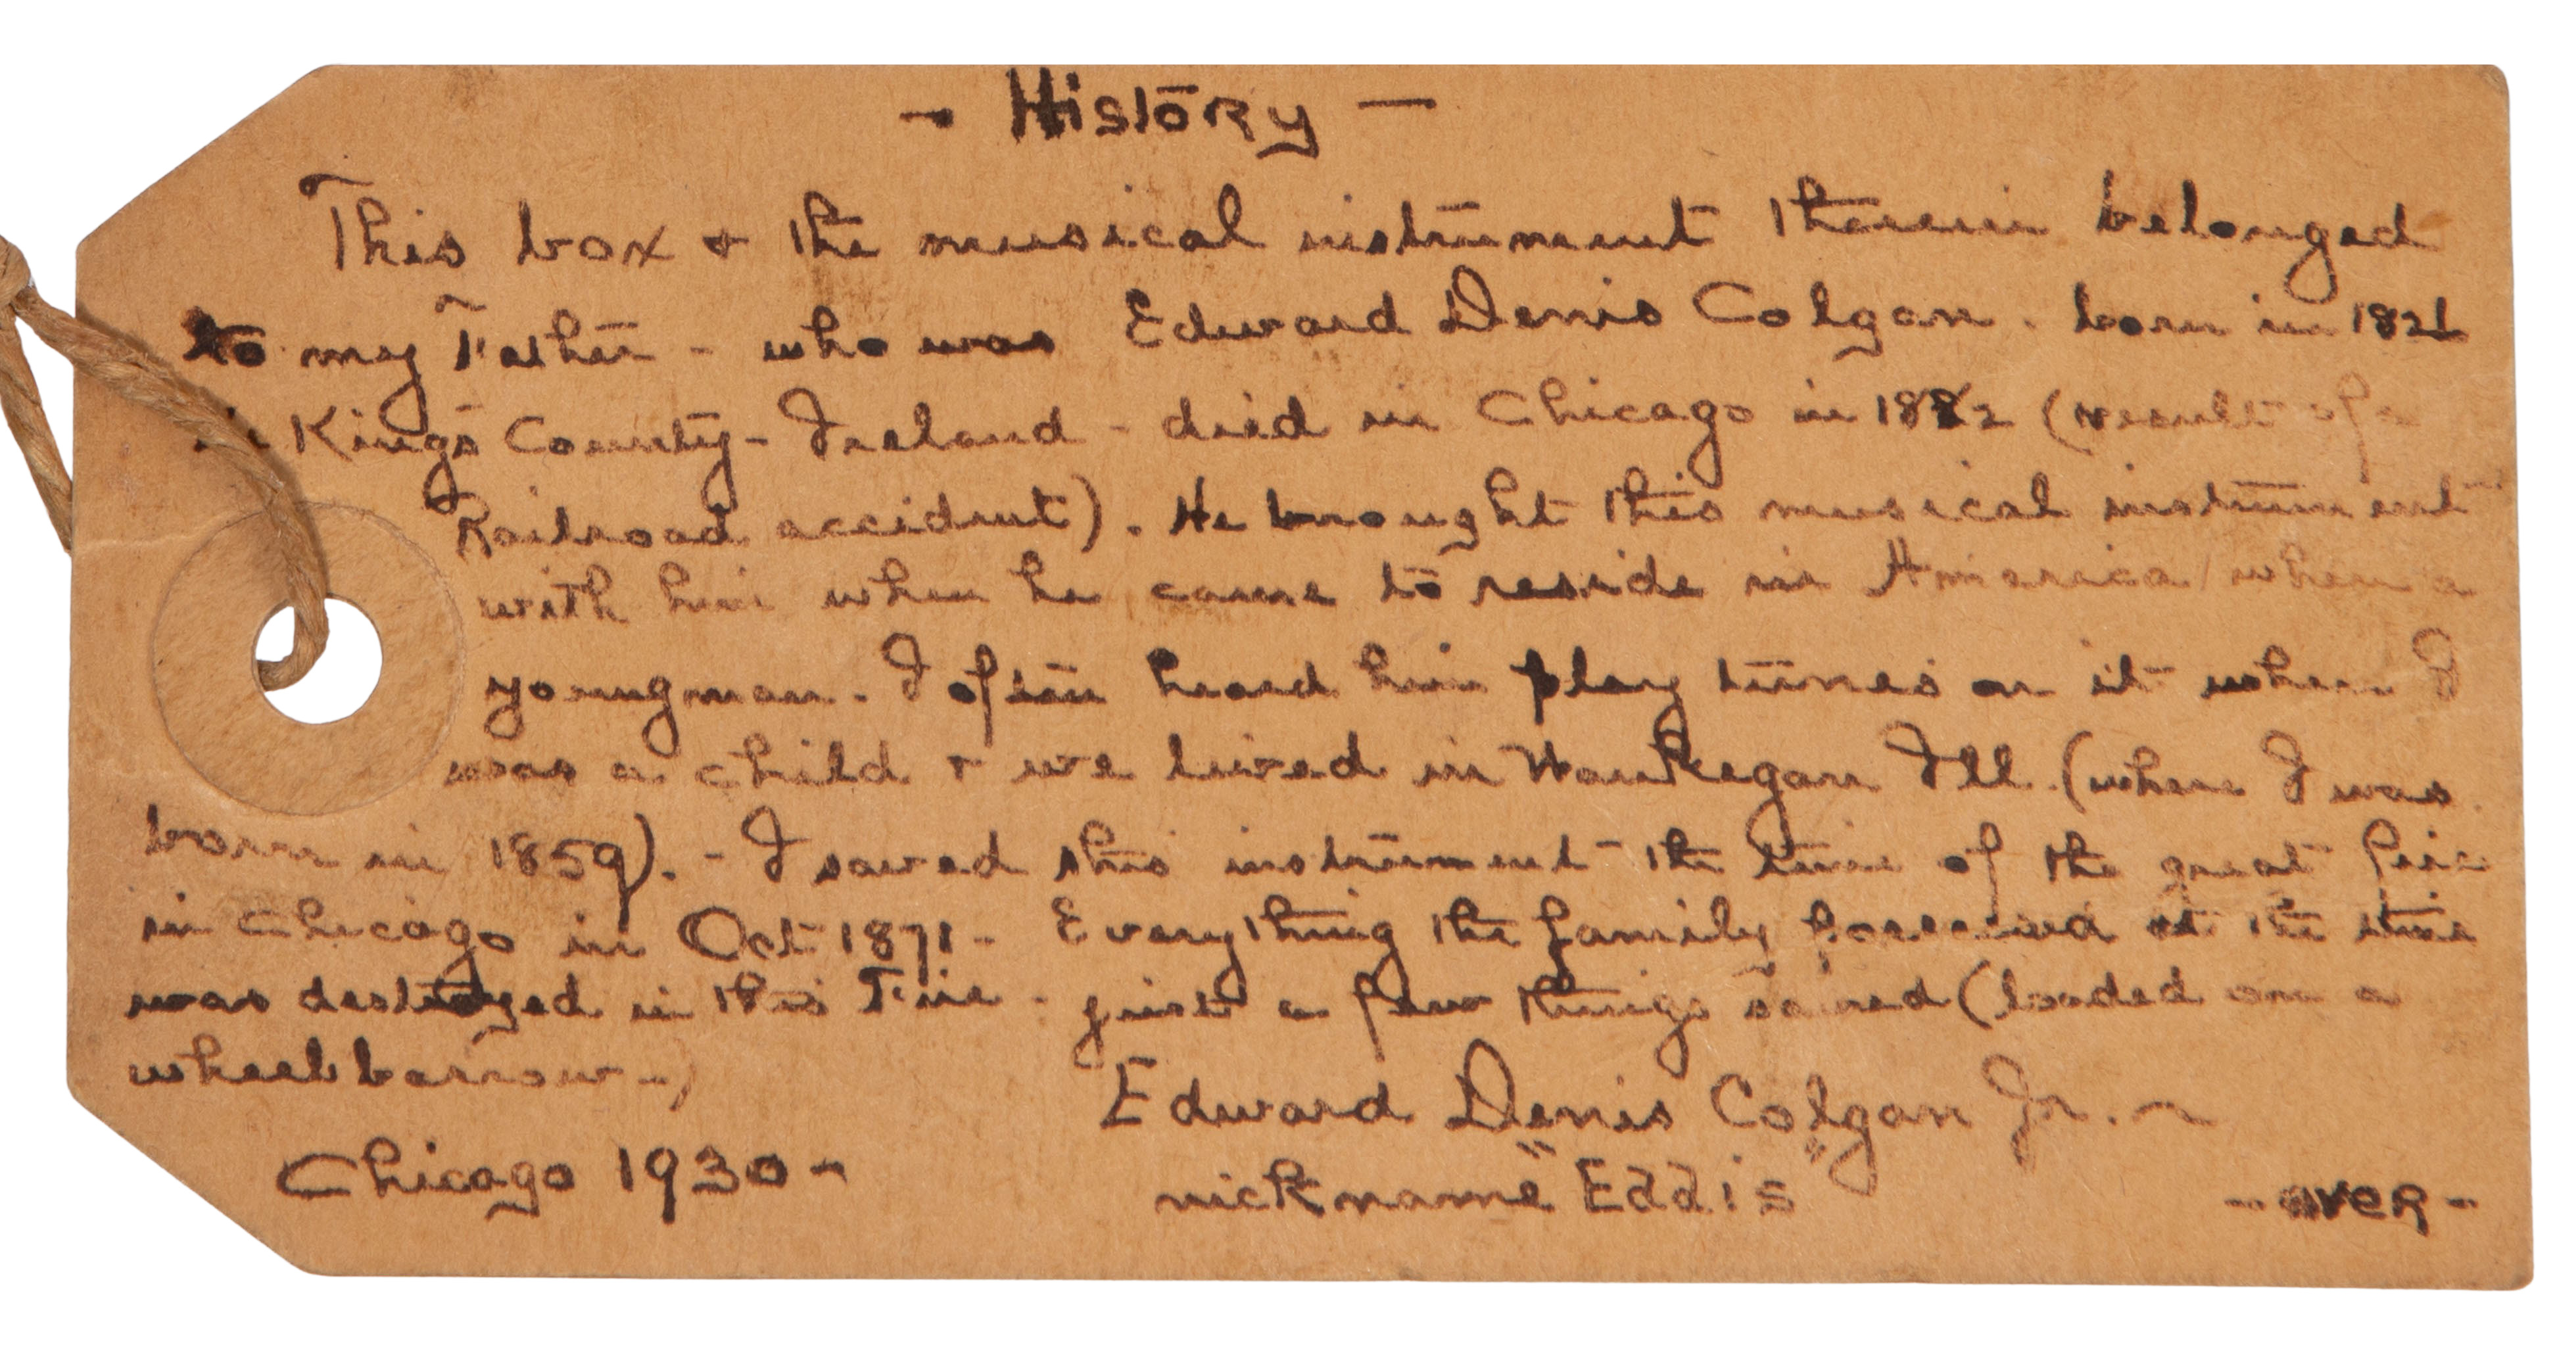 - History -
This box & the musical instrument therein belonged
to my Father - who was Edward Denis Colgan. born in 1821
in King's County - Ireland - died in Chicago in 1882 (result of a
Railroad accident). He brought this musical instrument
with him when he came to reside in America when a
young man. I often heard him play tunes on it when I
was a child & we lived in Waukegan Ill. (where I was
born in 1859). - I saved this instrument - the time of the great fire
in Chicago in Oct 1871 - Everything the family possessed at the time
was destroyed in this Fire - just a few things saved (loaded on a
wheelbarrow -)
Edward Denis Colgan Jr. ~
Chicago 1930 -
nickname "Eddis"
- over -